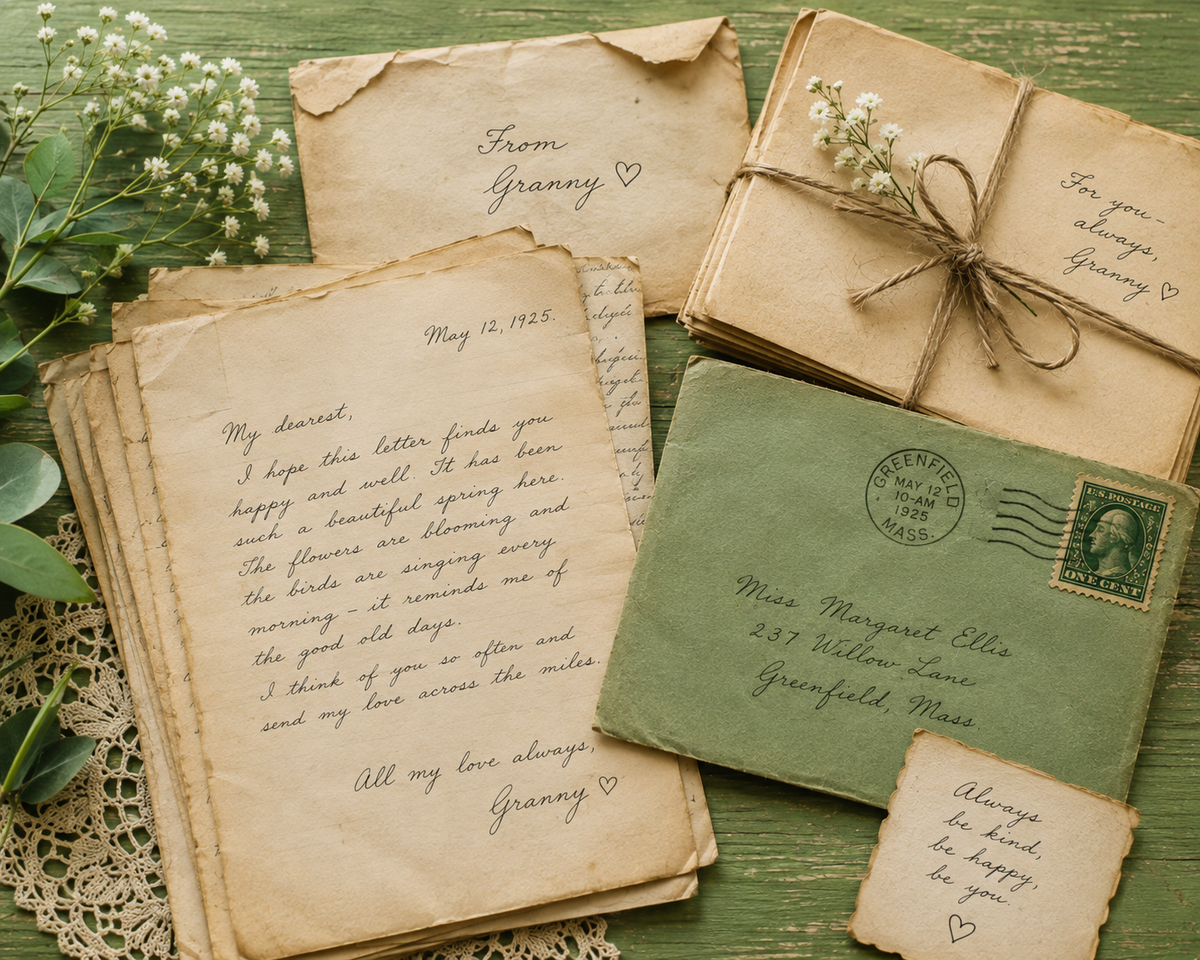 From
Granny ♡
For you–
always,
Granny ♡
May 12, 1925.
My dearest,
I hope this letter finds you
happy and well. It has been
such a beautiful spring here.
The flowers are blooming and
the birds are singing every
morning – it reminds me of
the good old days.
I think of you so often and
send my love across the miles.
All my love always,
Granny ♡
GREENFIELD
MAY 12
10-AM
1925
MASS.
U.S. POSTAGE
ONE CENT
Miss Margaret Ellis
237 Willow Lane
Greenfield, Mass.
Always
be kind,
be happy,
be you.
♡